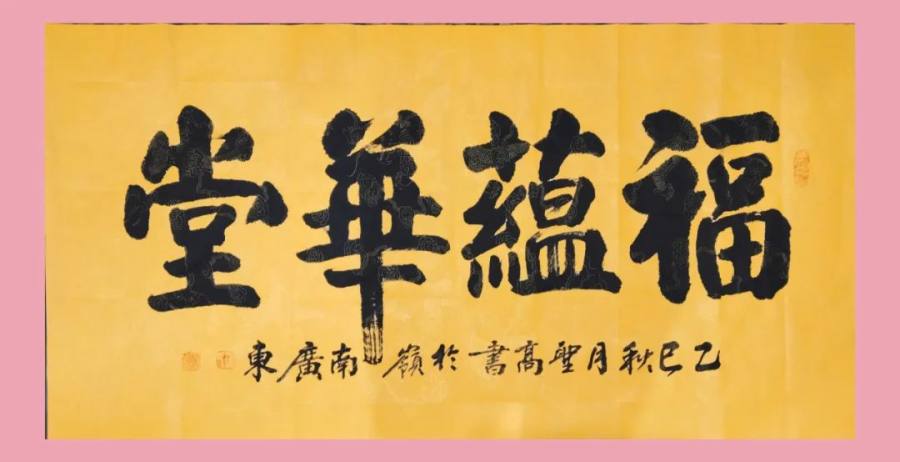 福蘊華堂
乙巳秋月聖高書於嶺南廣東